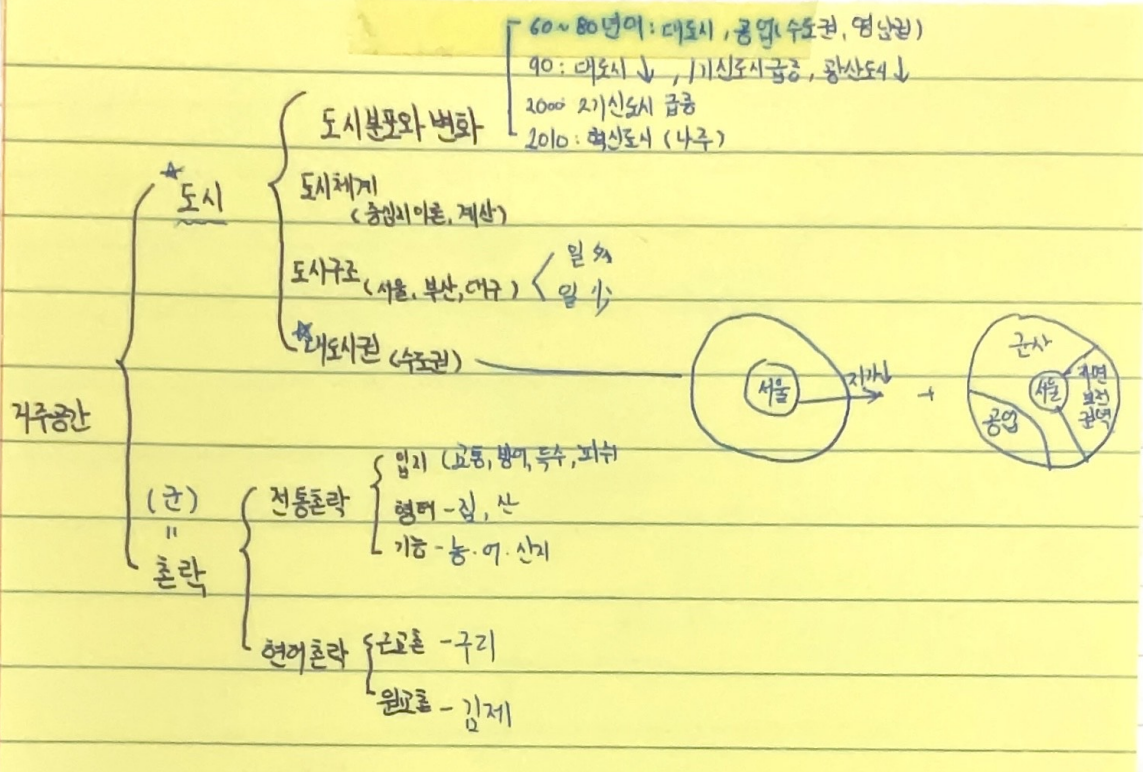 60~80년대 : 대도시, 공업(수도권, 영남권)
90 : 대도시↓, 1기신도시급증, 광산도시↓
2000 2기신도시 급증
2010 : 혁신도시 (나주)
도시분포와 변화
☆도시
도시체계
(중심지이론, 계산)
도시구조 (서울, 부산, 대구)
일 多
일 少
☆대도시권 (수도권)
서울
지가↓
+
군사
서울
자연
보전
권역
공업
거주공간
(군)
"
촌락
전통촌락
입지 (교통, 방어, 득수, 피수)
형태 - 집, 산
기능 - 농·어·산지
현대촌락
근교촌 - 구리
원교촌 - 김제